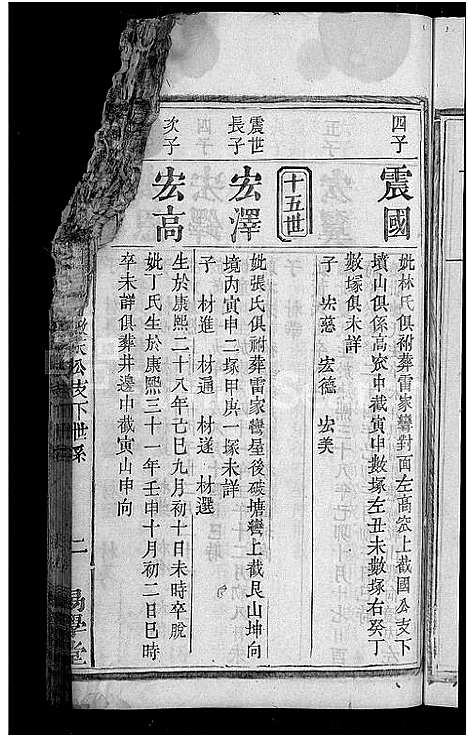 四子
震國
妣林氏俱祔葬雷家彎對面左高窊上截國公支下
墳山俱係高窊中截寅申數塚左丑未數塚右癸丁
數塚俱未詳
子 宏慈 宏德 宏美
十五世
震世
長子
宏澤
妣張氏俱祔葬雷家彎星後破塘彎上截艮山坤向
境內寅申二塚甲庚一塚未詳
子 材進 材通 材遂 材選
次子
宏高
生於康熙二十八年己巳九月初十日未時卒脫
妣丁氏生於康熙三十一年壬申十月初二日巳時
卒未詳俱葬井邊中截寅山申向
公支下世系
二